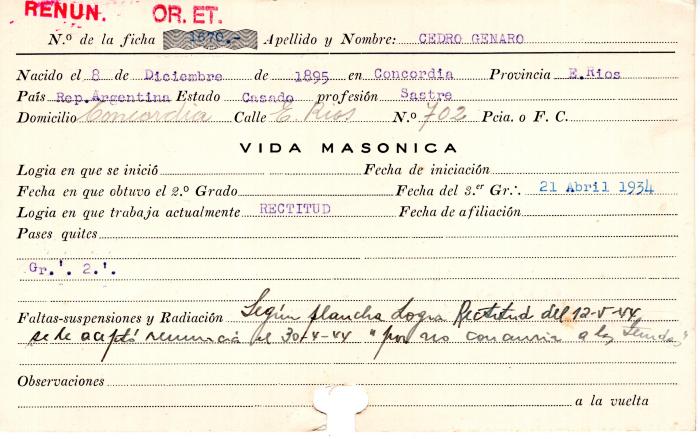 RENUN. OR. ET.
N.º de la ficha 1670.- Apellido y Nombre: CEDRO GENARO
Nacido el 8 de Diciembre de 1895 en Concordia Provincia E.Rios
País Rep.Argentina Estado Casado profesión Sastre
Domicilio Concordia Calle E. Rios N.º 702 Pcia. o F. C.
VIDA MASONICA
Logia en que se inició Fecha de iniciación
Fecha en que obtuvo el 2.º Grado Fecha del 3.er Gr∴ 21 Abril 1934
Logia en que trabaja actualmente RECTITUD Fecha de afiliación
Pases quites
Gr.'. 2.'.
Faltas-suspensiones y Radiación Según plancha Logia Rectitud del 12-5-44,
se le aceptó renuncia el 30-4-44 "por no concurrir a las Tenidas"
Observaciones
a la vuelta